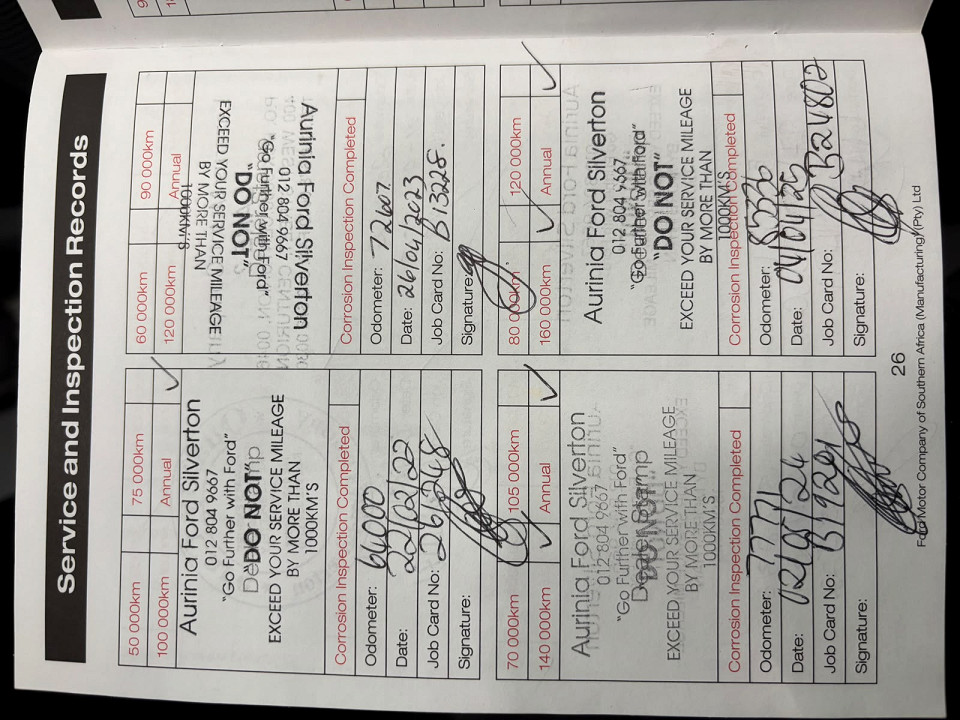 Service and Inspection Records
50 000km 75 000km
100 000km Annual ✓
Aurinia Ford Silverton
012 804 9667
"Go Further with Ford"
"DO NOT"
EXCEED YOUR SERVICE MILEAGE
BY MORE THAN
1000KM'S
Corrosion Inspection Completed
Odometer: 64000
Date: 22/02/22
Job Card No: 26248
Signature:
60 000km 90 000km
120 000km Annual
Aurinia Ford Silverton
012 804 9667
"Go Further with Ford"
"DO NOT"
EXCEED YOUR SERVICE MILEAGE
BY MORE THAN
1000KM'S
Corrosion Inspection Completed
Odometer: 72607.
Date: 26/04/2023
Job Card No: B13228.
Signature:
70 000km 105 000km
140 000km ✓ Annual ✓
Aurinia Ford Silverton
012 804 9667
"Go Further with Ford"
Dealer Stamp
"DO NOT"
EXCEED YOUR SERVICE MILEAGE
BY MORE THAN
1000KM'S
Corrosion Inspection Completed
Odometer: 77771
Date: 02/05/24
Job Card No: B19201
Signature:
80 000km 120 000km
160 000km ✓ Annual ✓
Aurinia Ford Silverton
012 804 9667
"Go Further with Ford"
"DO NOT"
EXCEED YOUR SERVICE MILEAGE
BY MORE THAN
1000KM'S
Corrosion Inspection Completed
Odometer: 85336
Date: 04/04/25
Job Card No: B241802
Signature:
26
Ford Motor Company of Southern Africa (Manufacturing) (Pty) Ltd